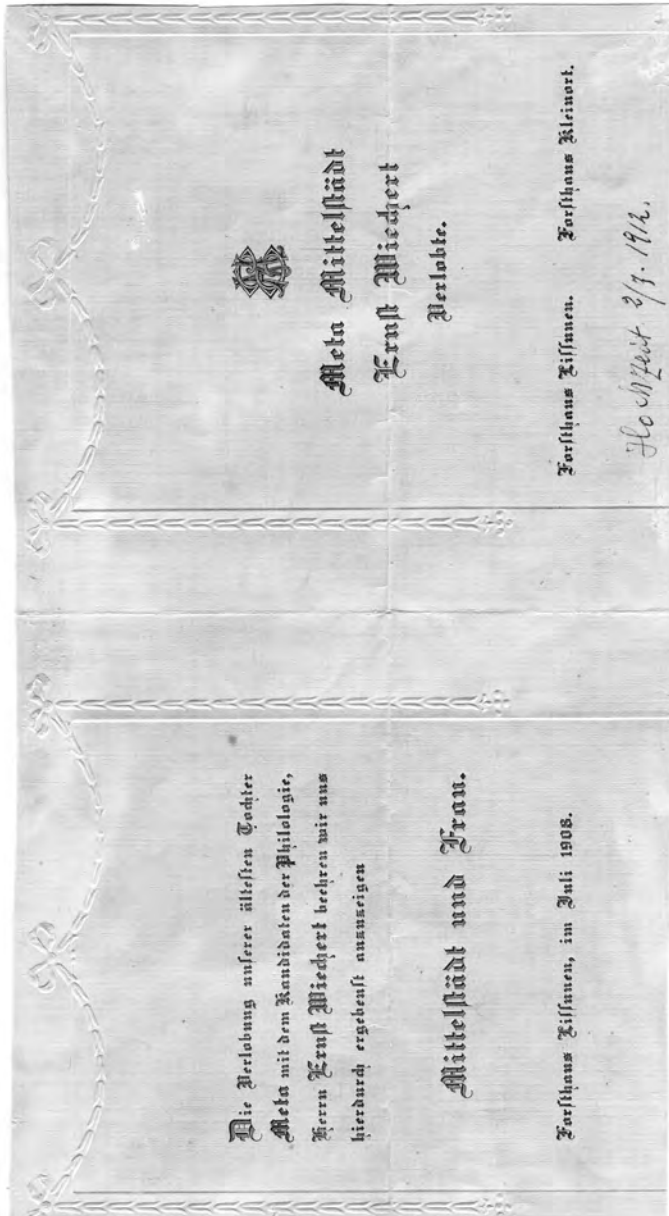 Die Verlobung unserer ältesten Tochter
Meta mit dem Kandidaten der Philologie,
Herrn Ernst Wiechert beehren wir uns
hierdurch ergebenst anzuzeigen
Mittelstädt und Frau.
Forsthaus Lissunen, im Juli 1908.
Meta Mittelstädt
Ernst Wiechert
Verlobte.
Forsthaus Lissunen. Forsthaus Kleinort.
Hochzeit 2/7. 1912.